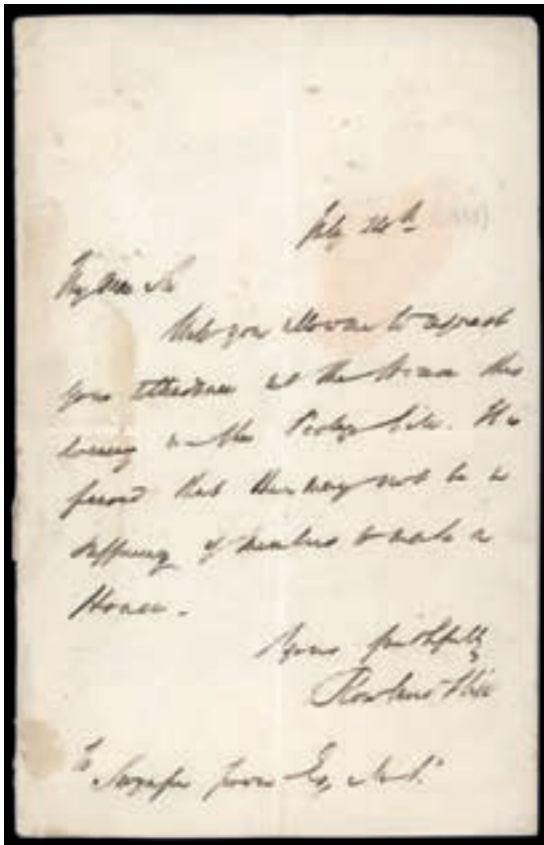 July 24th
My dear Sir
Will you allow me to request
your attendance at the House this
evening on the Postage Bill. It is
feared that there may not be a
sufficiency of members to make a
House.
Yours faithfully
Rowland Hill
To
Esq M.P.